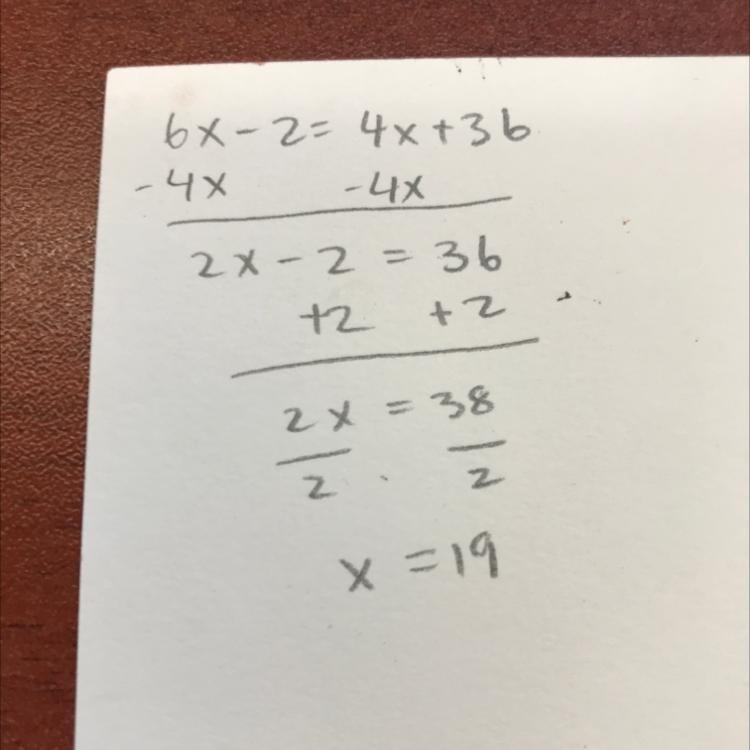 6x-2=4x+36
-4x -4x
2x-2=36
+2 +2
2x=38
2 2
x=19